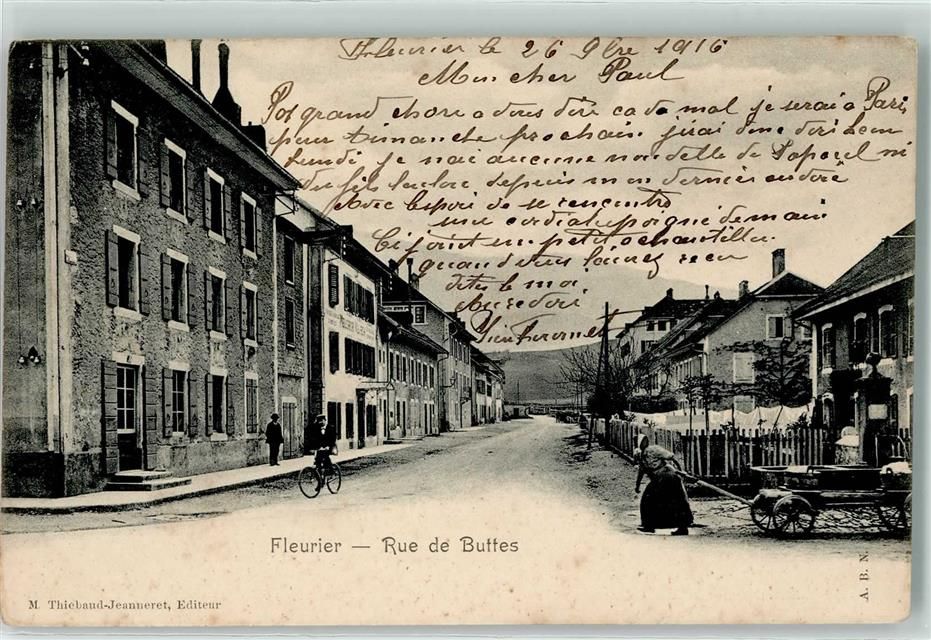 Fleurier le 26 9bre 1916
Mon cher Paul
Pas grand chose a vous dire ca va mal je serai a Paris
pour Dimanche prochain. j'irai vous voir
Lundi, je n'ai aucune nouvelle de ni
du fils depuis mon dernier
Avec l'espoir de se rencontre
une cordiale poignée de main
Ci joint un petit echantillon.
quand vous l'aurez recu
dites le moi
Au revoir
Fleurier — Rue de Buttes
M. Thiebaud-Jeanneret, Editeur
A. B. N.